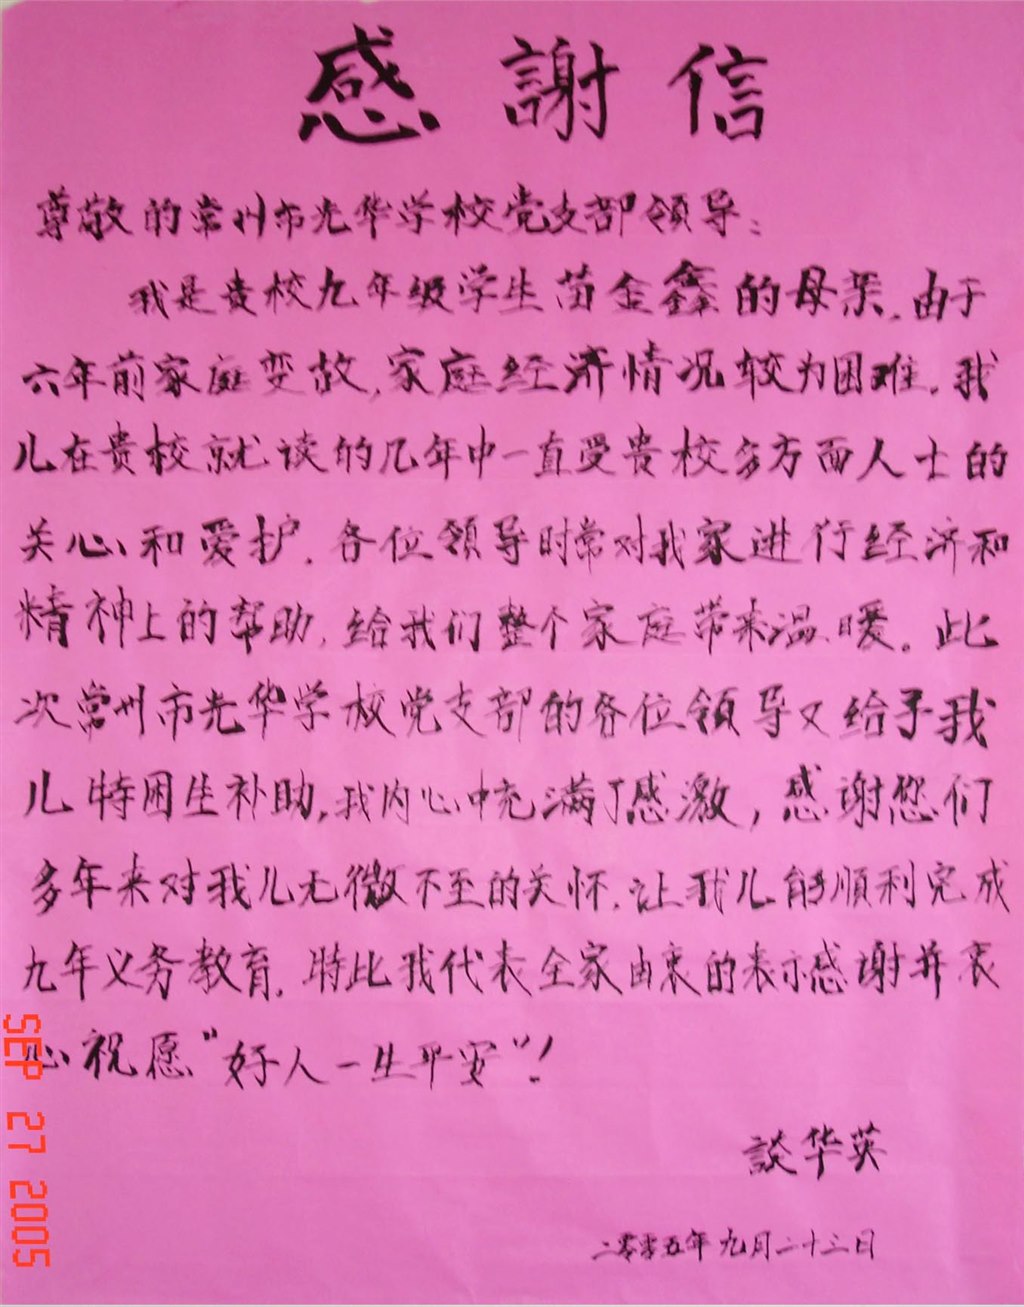 感謝信
尊敬的常州市光华学校党支部领导：
我是贵校九年级学生苗金鑫的母亲.由于
六年前家庭变故,家庭经济情况较为困难.我
儿在贵校就读的几年中一直受贵校多方面人士的
关心和爱护.各位领导时常对我家进行经济和
精神上的帮助,给我们整个家庭带来温暖。此
次常州市光华学校党支部的各位领导又给予我
儿特困生补助,我内心中充满了感激，感谢您们
多年来对我儿无微不至的关怀.让我儿能顺利完成
九年义务教育.特此我代表全家由衷的表示感谢并衷
心祝愿“好人一生平安”!
談华英
二零零五年九月二十三日
SEP 27 2005